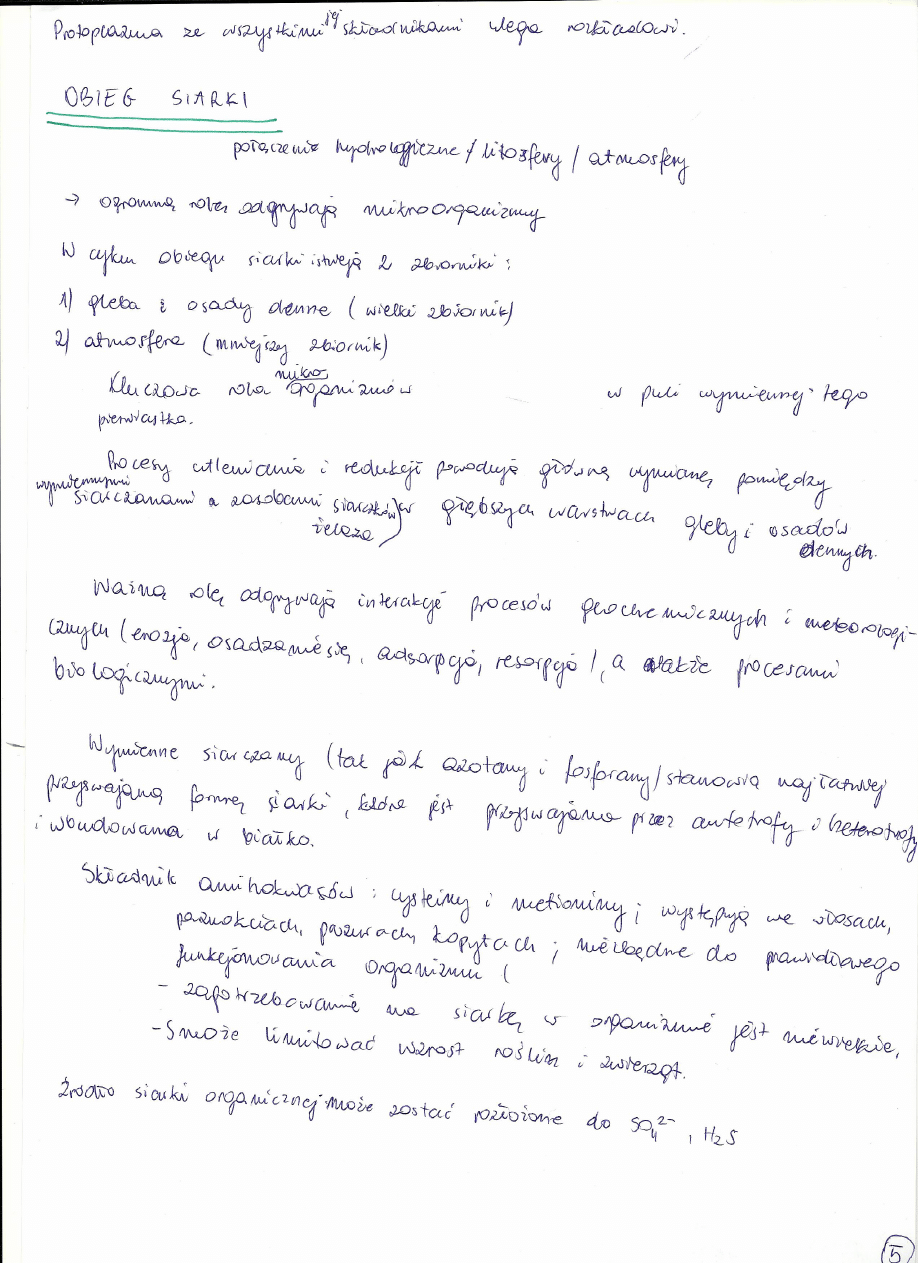 Protoplazma ze wszystkimi składnikami ulega rozkładowi.
OBIEG SIARKI
połączenie hydrologiczne / litosfery / atmosfery
→ ogromną rolę odgrywają mikroorganizmy
W cyklu obiegu siarki istnieją 2 zbiorniki:
1) gleba i osady denne (wielki zbiornik)
2) atmosfera (mniejszy zbiornik)
mikro
Kluczowa rola organizmów w puli wymiennej tego
pierwiastka.
Procesy utleniania i redukcji powodują główną wymianę pomiędzy
wymiennymi
siarczanami a zasobami siarczków w głębszych warstwach gleby i osadów
żelaza dennych.
Ważną rolę odgrywają interakcje procesów geochemicznych i meteorologi-
cznych (erozja, osadzanie się, adsorpcja, resorpcja), a także procesami
biologicznymi.
Wymienne siarczany (tak jak azotany i fosforany) stanowią najłatwiej
przyswajaną formę siarki, która jest przyswajana przez autotrofy i heterotrofy
i wbudowana w białko.
Składnik aminokwasów: cysteiny i metioniny; występują we włosach,
paznokciach, pazurach, kopytach; niezbędne do prawidłowego
funkcjonowania organizmu (
- zapotrzebowanie na siarkę w organizmie jest niewielkie,
- S może limitować wzrost roślin i zwierząt.
Źródło siarki organicznej może zostać rozłożone do SO₄²⁻, H₂S
5